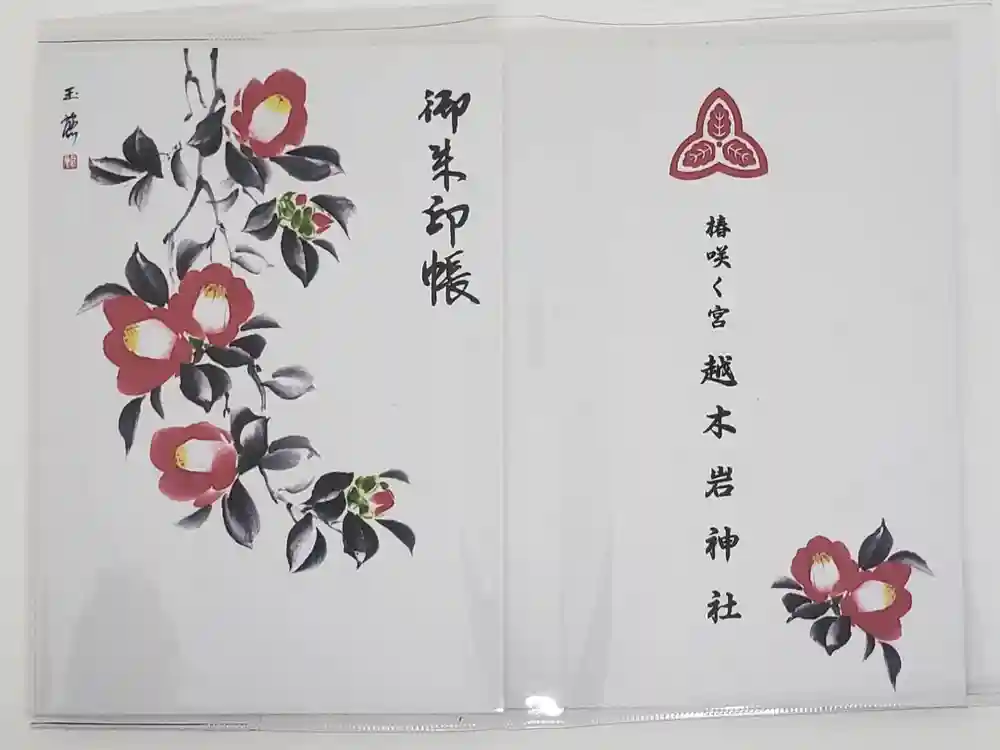 御朱印帳
椿咲く宮 越木岩神社